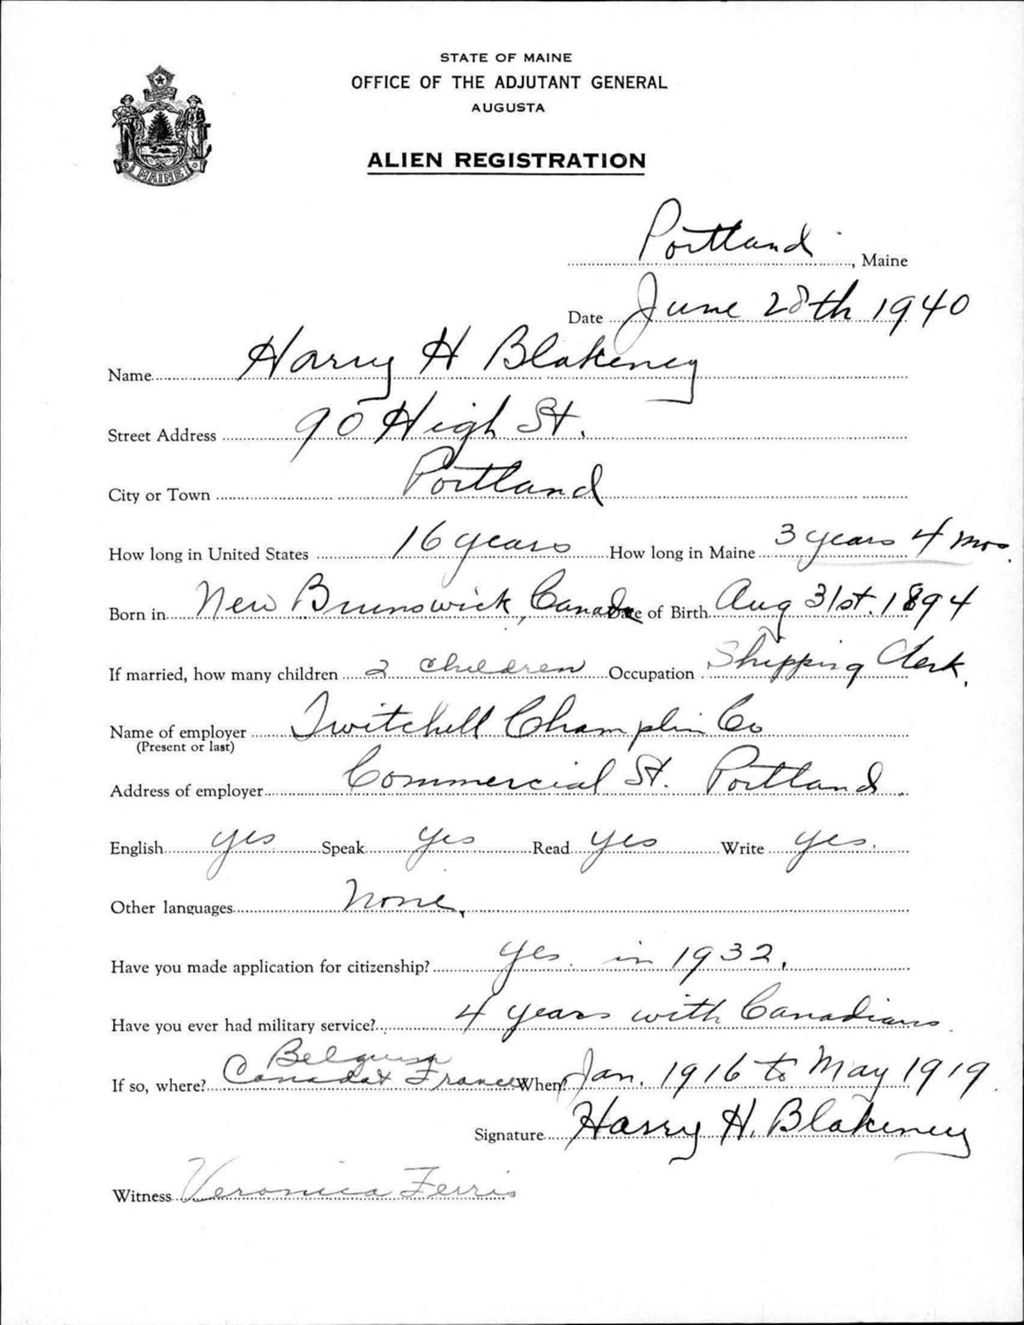 STATE OF MAINE
OFFICE OF THE ADJUTANT GENERAL
AUGUSTA
ALIEN REGISTRATION
MAINE
Portland, Maine
Date June 28th 1940
Name Harry H Blakeney
Street Address 90 High St.
City or Town Portland
How long in United States 16 years How long in Maine 3 years 4 mos.
Born in New Brunswick, Canada Date of Birth Aug 31st. 1894
If married, how many children 2 children Occupation Shipping Clerk.
Name of employer Twitchell Champlin Co
(Present or last)
Address of employer Commercial St. Portland.
English yes Speak yes Read yes Write yes.
Other languages None.
Have you made application for citizenship? Yes. in 1932.
Have you ever had military service? 4 years with Canadians.
Belguim
If so, where? Canada & France When? Jan. 1916 to May 1919.
Signature Harry H. Blakeney
Witness Veronica Ferris